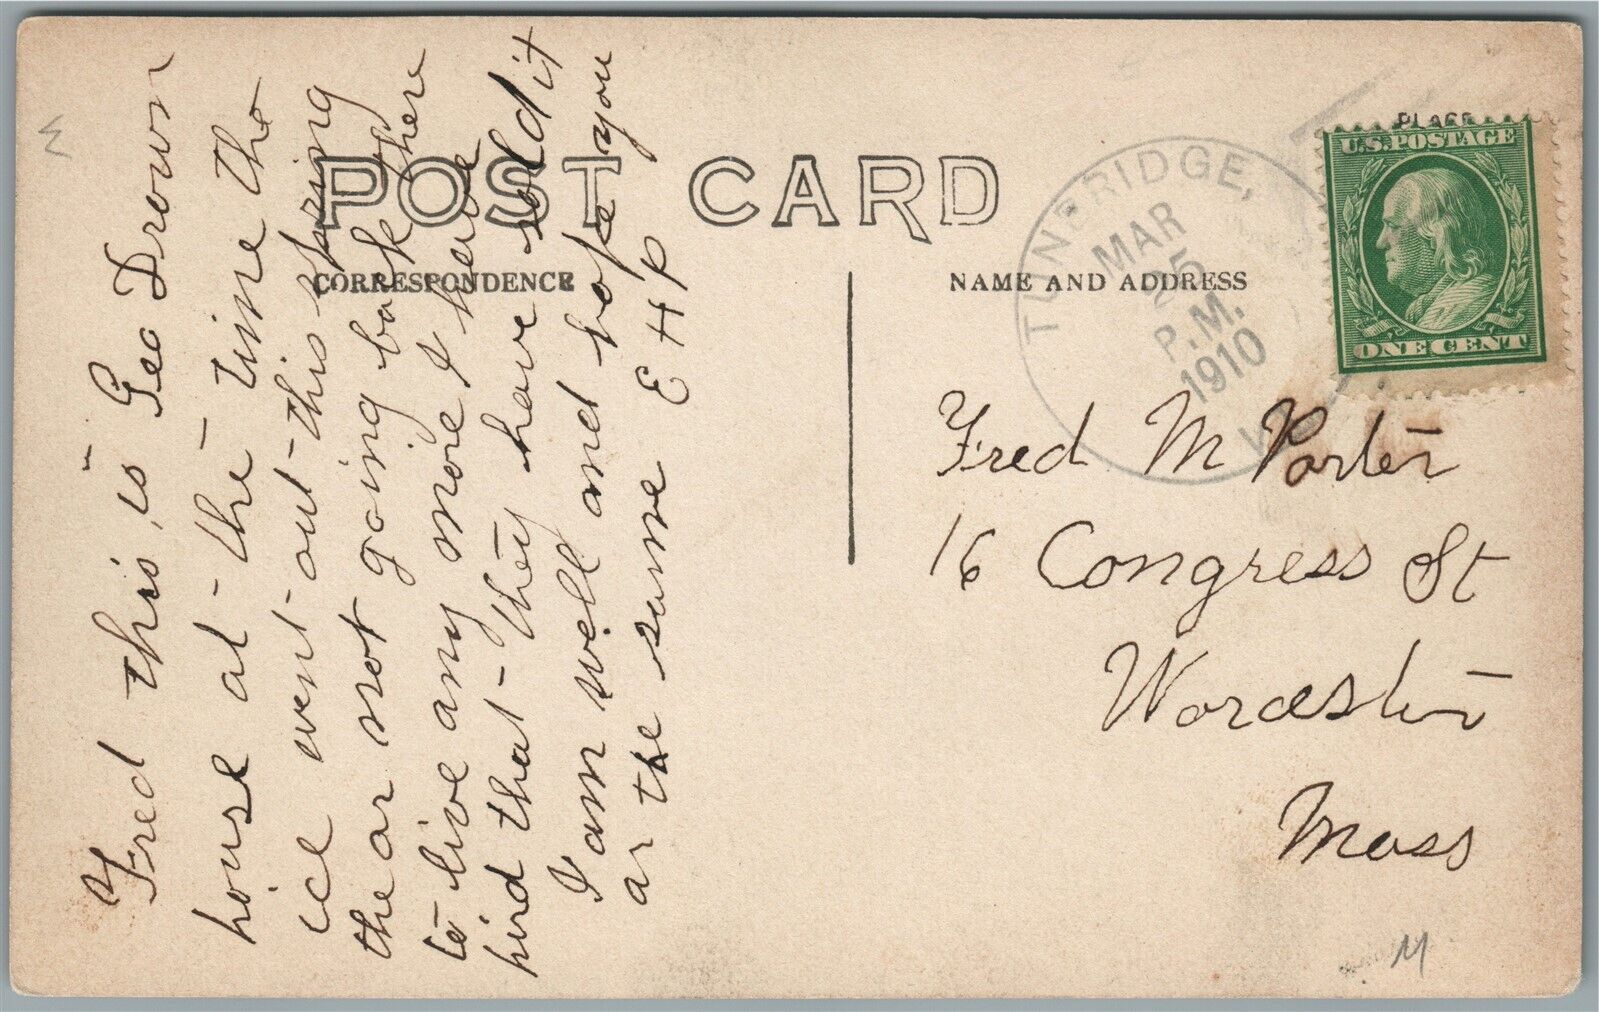 POST CARD
CORRESPONDENCE
NAME AND ADDRESS
Fred this is Geo Drown
house at the time the
ice went out this spring
the ar not going back there
to live any more I have
hird that they have sold it
I am well and hope you
ar the same E H P
TUNBRIDGE,
MAR
25
P.M.
1910
V
PLACE
U.S. POSTAGE
ONE CENT
Fred M Porter
16 Congress St
Worcester
Mass
M